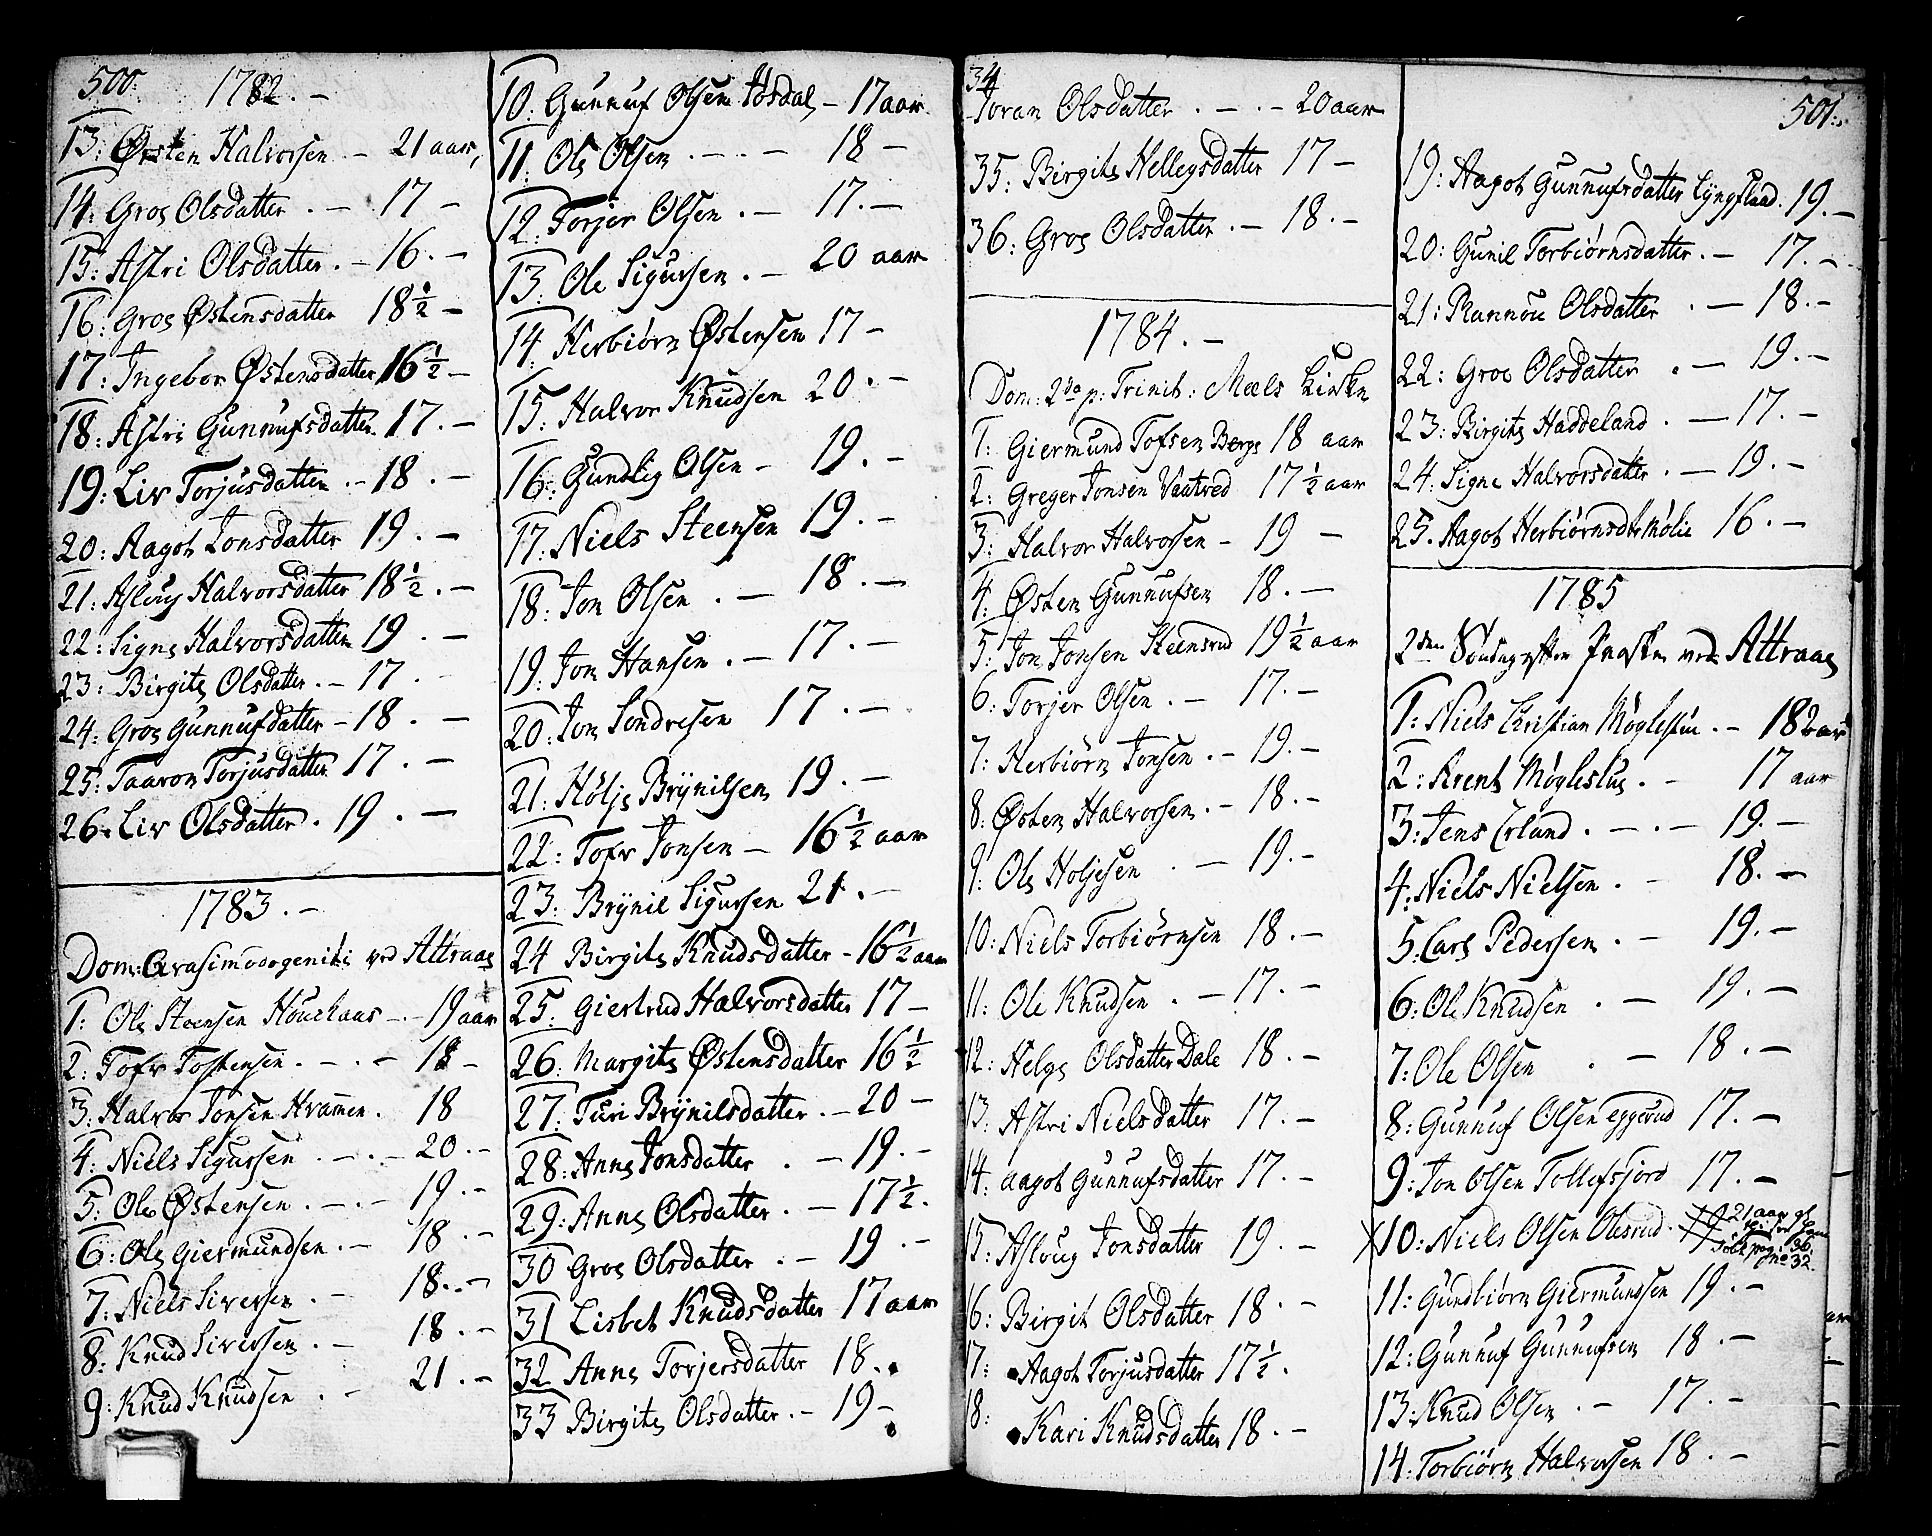 500.
1782. -
13: Østen Halvorsen - 21 aar,
14: Groe Olsdatter . - 17 -
15: Astri Olsdatter . - 16. -
16: Groe Østensdatter 18½ -
17: Ingebor Østensdatter 16½ -
18: Astri Gunnufsdatter 17. -
19: Liv Torjusdatter . - 18 . -
20: Aagot Jonsdatter 19 . -
21: Asloug Halvorsdatter 18½ . -
22: Signe Halvorsdatter 19 . -
23: Birgite Olsdatter . - 17 . -
24: Groe Gunnufdatter - 18 . -
25: Taaron Torjusdatter 17 . -
26: Liv Olsdatter . 19 . -
1783. -
Dom: Qvasimodogeniti ved Attraae
1: Ole Steensen Houckaas - . - 19 aar
2: Tofr Tostensen . - . - 18 -
3: Halvor Jonsen Hvammen . 18
4: Niels Sigursen . - . - 20 . -
5: Ole Østensen . - . - 19 . -
6: Ole Giermundsen . - 18 . -
7: Niels Siversen . - 18 . -
8: Knud Siversen . - 18 . -
9: Knud Knudsen . - 21 . -
10: Gunnuf Olsen Høsdal, - 17 aar
11: Ole Olsen . - . - 18 -
12: Torjer Olsen . - 17. -
13: Ole Sigursen . - 20 aar
14: Herbiørn Østensen 17 -
15: Halvor Knudsen 20 . -
16: Gundleg Olsen - 19 . -
17: Niels Steensen 19 . -
18: Jon Olsen . - 18 . -
19: Jon Hansen . - 17 . -
20: Jon Sondresen 17 . -
21: Hølje Brynilsen 19 . -
22: Tofr Jonsen - 16½ aar
23: Brynil Sigursen 21 . -
24 Birgite Knudsdatter - 16½ aar
25: Giertrud Halvorsdatter 17 -
26: Margite Østensdatter 16½
27: Turi Brynilsdatter . - 20 -
28: Anne Jonsdatter . - 19 . -
29: Anne Olsdatter . - 17½ .
30 Groe Olsdatter . - 19 . -
31 Lisbet Knudsdatter 17 aar
32 Anne Torjersdatter 18 . -
33 Birgite Olsdatter . - 19 -
34
Joran Olsdatter . - . - 20 aar
35: Birgite Hellegsdatter 17 -
36: Groe Olsdatter . - 18 . -
1784. -
Dom: 2da p: Trinit: Mæls Kirke
1: Giermund Tofsen Berge 18 aar
2: Greger Jonsen Vaatved 17½ aar
3: Halvor Halvorsen - 19 -
4: Østen Gunnufsen 18 . -
5: Jon Jonsen Steensrud 19½ aar
6: Torjer Olsen . - 17. -
7: Herbiørn Jonsen . - 19 . -
8: Østen Halvorsen . - 18 . -
9: Ole Holjesen . - 19 . -
10: Niels Torbiørnsen 18 . -
11: Ole Knudsen . - 17 . -
12: Helge Olsdatter Dale 18 . -
13: Astri Nielsdatter 17 . -
14: Aagot Gunnufsdatter 17 . -
15: Asloug Jonsdatter 19 . -
16: Birgit Olsdatter 18 . -
17: Aagot Torjusdatter 17½ .
18: Kari Knudsdatter 18 . -
501.
19: Aagot Gunnufsdatter Lyngfland. 19 . -
20: Gunil Torbiørnsdatter . - 17 . -
21: Rannou Olsdatter . - 18 . -
22: Groe Olsdatter . - 19 . -
23: Birgite Haddeland . - 17 . -
24: Signe Halvorsdatter . - 19 . -
25. Aagot Herbiørnsdtr Mølie 16 . -
1785
2den Søndag efter Paaske ved Attraae
1: Niels Christian Møglestue . - 18 aar
2: Arent Møglestue . - 17 aar
3: Jens Erland . - . - 19. -
4: Niels Nielsen . - 18 . -
5: Lars Pedersen . - 19 . -
6: Ole Knudsen . - 19 . -
7: Ole Olsen . - 18 . -
8: Gunnuf Olsen Eggerud 17 . -
9: Jon Olsen Tollefsjord 17 . -
10: Niels Olsen Olesrud . 21 aar
pag: 36. no 32.
11: Gundbiørn Giermundsen 19 . -
12: Gunnuf Gunnufsen 18 . -
13: Knud Olsen . - 17 . -
14: Torbiørn Halvorsen 18 . -